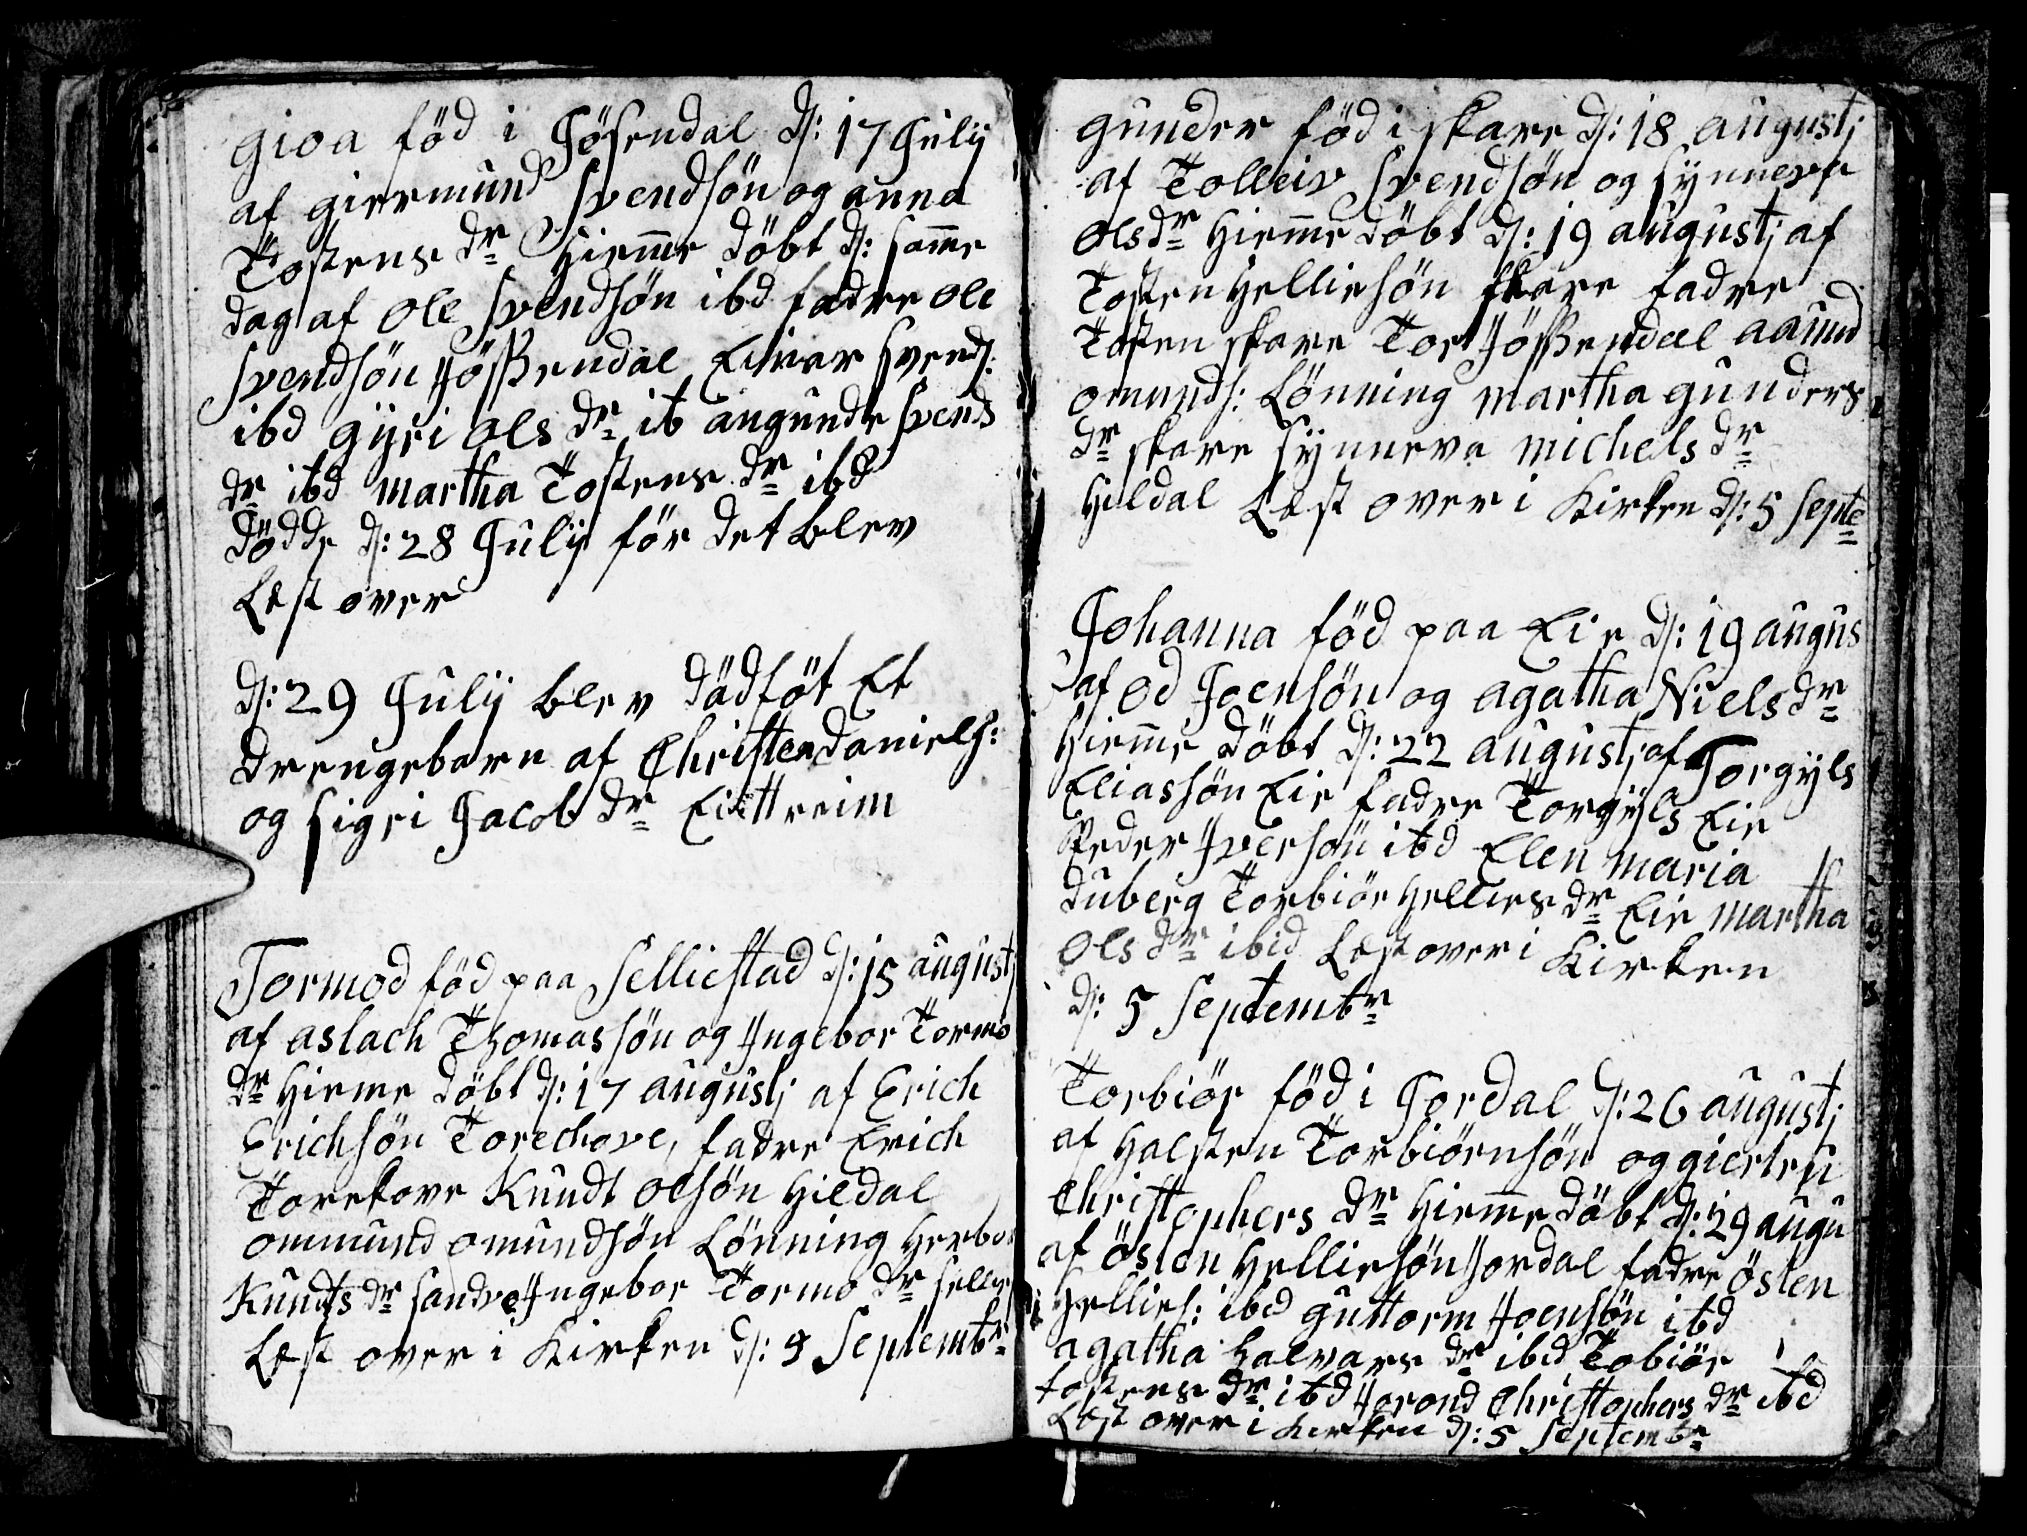 gioa föd i Jösendal d: 17 Julij
af giermund Svendsön og anna
Tostens dr hieme döbt d: same
dag af Ole Svendsön ibd fadre Ole
Svendsön Jössendal Einar Svends:
ibd gyri Ols dr ib angunde Svends
dr ibd martha Tostens dr ibd
dödde d: 28 Julij för det blev
Lest over
d: 29 Julij blev dödföt Et
drengebarn af Christen daniels:
og Sigri Jacob dr Eittreim
Tormod föd paaSelliestad d: 15 augustj
af aslach Thomassön og Ingebor Tormo
dr hieme döbt d: 17 augustj af Erich
Erichsön Torechove, fadre Erich
Torekove Knudt olsön Hildal
ommund omundsön Lönning Herbor
Knudts dr Sandve Ingebor Tormo dr Selle
Lest over i Kirken d: 5 Septembr
gunder föd i Skare d: 18 augustj
af Tolleiv Svendsön og Synneva
Ols dr hieme döbt d: 19 augustj af
Tosten Helliesön Skare fadre
Tosten Skare Tor Jössendal aamund
omunds: Lönning martha gunders
dr Skare Synneva michels dr
Hildal Lest over i Kirken d: 5 Septe
Johanna föd paa Eie d: 19 augus
af Od Joensön og agatha Niels dr
hieme döbt d: 22 augustj af Torgyls
Eliassön Eie fadre Torgyls Eie
Peder Iversön ibd Elen maria
duberg Torbiör Hellies dr Eie martha
Ols dr ibid Lest over i Kirken
d: 5 Septembr
Torbiör föd i Jordal d: 26 augustj
af Halsten Torbiörnsön og giertru
Christophers dr hieme döbt d: 29 augu
af östen Helliesön Jordal fadre östen
Hellies: ibd guttorm Joensön ibd
agatha halvars dr ibid Tobiör
tostens dr ibd Jorond Christophers dr ibd
Lest over i Kirken d: 5 Septembr